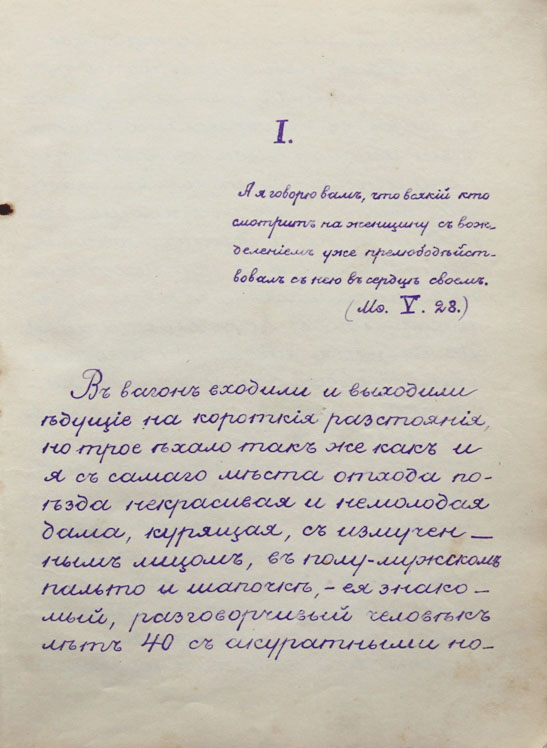 I.
А я говорю вамъ, что всякій кто
смотритъ на женщину съ вож-
делениемъ уже прелюбодѣйст-
вовалъ съ нею въ сердцѣ своемъ.
(Мѳ. V. 28.)
Въ вагонъ входили и выходили
ѣдущіе на короткія разстоянія,
но трое ѣхало такъ же какъ и
я съ самаго мѣста отхода по-
ѣзда некрасивая и немолодая
дама, курящая, съ измучен-
нымъ лицомъ, въ полу-мужскомъ
пальто и шапочкѣ, - ея знако-
мый, разговорчивый человѣкъ
лѣтъ 40 съ акуратными но-